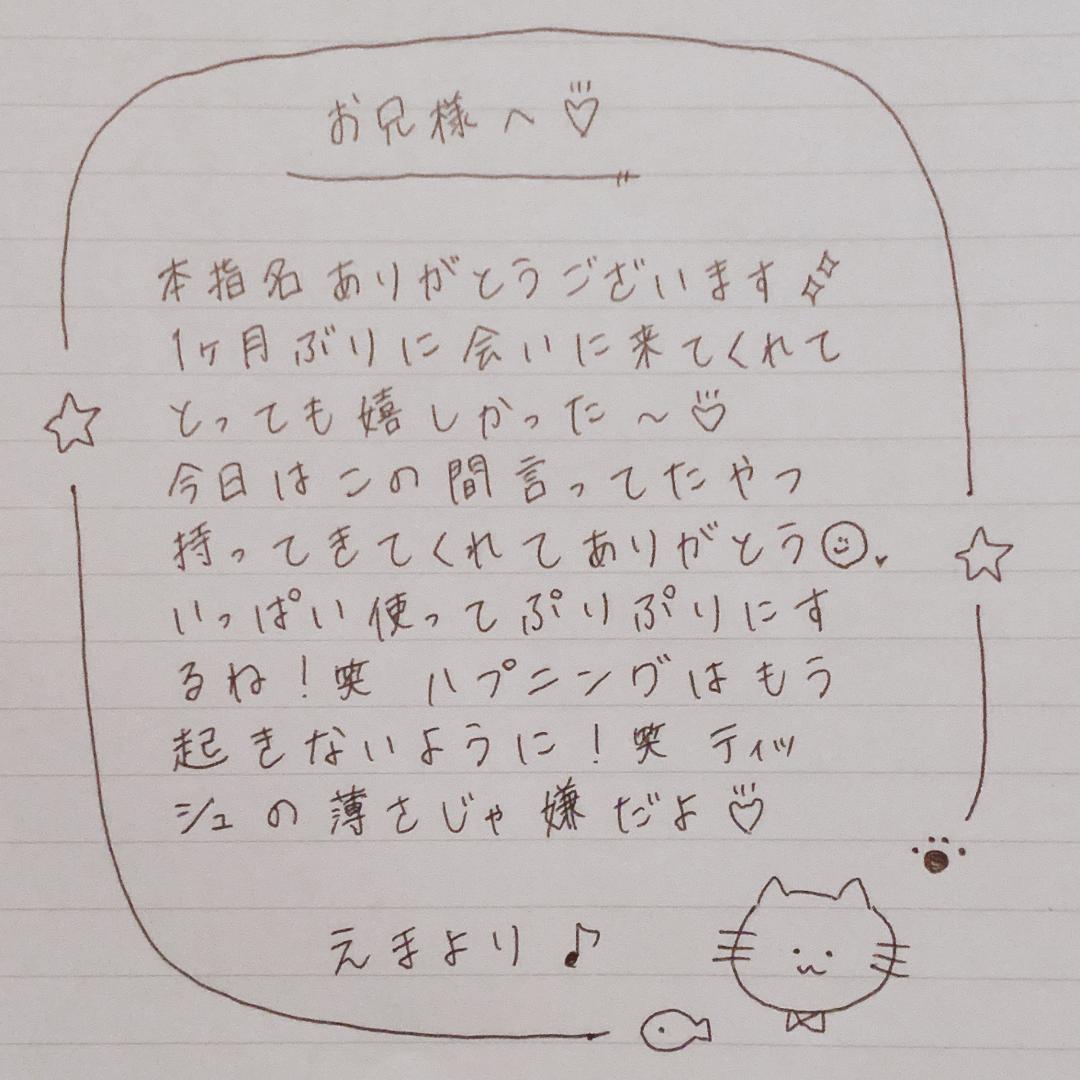 お兄様へ♡
本指名ありがとうございます
1ヶ月ぶりに会いに来てくれて
とっても嬉しかった〜♡
今日はこの間言ってたやつ
持ってきてくれてありがとう
いっぱい使ってぷりぷりにす
るね！笑 ハプニングはもう
起きないように！笑 ティッ
シュの薄さじゃ嫌だよ♡
えまより♪